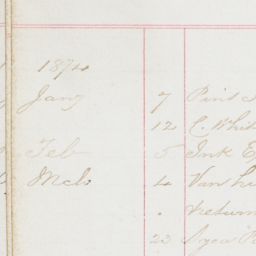 1874
Jany 7 Pint
12 C. Whit
Feb 5 Ink E
Mch 4 Van Li
. return
23